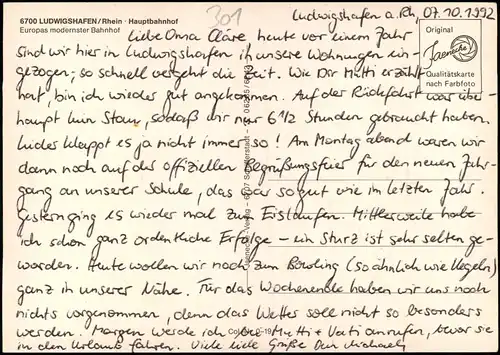 6700 LUDWIGSHAFEN/Rhein · Hauptbahnhof
Europas modernster Bahnhof
301
Ludwigshafen a. Rh, 07.10.1992
Original
Jaenicke
Qualitätskarte
nach Farbfoto
Liebe Oma Cläre, heute vor einem Jahr
sind wir hier in Ludwigshafen in unsere Wohnungen ein-
gezogen; so schnell vergeht die Zeit. Wie Dir Mutti erzählt
hat, bin ich wieder gut angekommen. Auf der Rückfahrt war über-
haupt kein Stau, sodaß wir nur 6 1/2 Stunden gebraucht haben.
Leider klappt es ja nicht immer so! Am Montag abend waren wir
dann noch auf der offiziellen Begrüßungsfeier für den neuen Jahr-
gang an unserer Schule, das war so gut wie im letzten Jahr.
Gestern ging es wieder mal zum Eislaufen. Mittlerweile habe
ich schon ganz ordentliche Erfolge – ein Sturz ist sehr selten ge-
worden. Heute wollen wir noch zum Bowling (so ähnlich wie Kegeln)
ganz in unserer Nähe. Für das Wochenende haben wir uns noch
nichts vorgenommen, denn das Wetter soll nicht so besonders
werden. Morgen werde ich bei Mutti + Vati anrufen, bevor sie
in den Urlaub fahren. Viele liebe Grüße Dein Michael